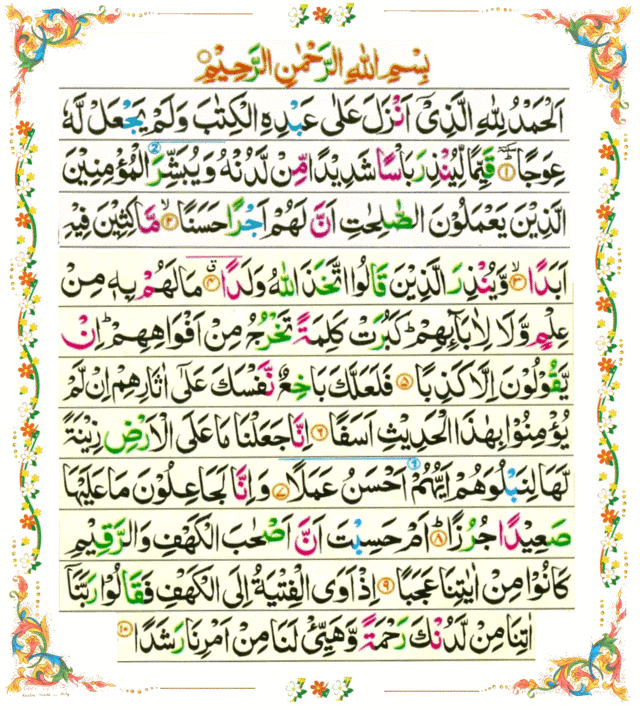 بِسْمِ اللّٰهِ الرَّحْمٰنِ الرَّحِيْمِ
اَلْحَمْدُ لِلّٰهِ الَّذِيْۤ اَنْزَلَ عَلٰى عَبْدِهِ الْكِتٰبَ وَلَمْ يَجْعَلْ لَّهٗ
عِوَجًا ؕ۝۱ قَيِّمًا لِّيُنْذِرَ بَاْسًا شَدِيْدًا مِّنْ لَّدُنْهُ وَيُبَشِّرَ الْمُؤْمِنِيْنَ
الَّذِيْنَ يَعْمَلُوْنَ الصّٰلِحٰتِ اَنَّ لَهُمْ اَجْرًا حَسَنًا ۙ۝۲ مَّاكِثِيْنَ فِيْهِ
اَبَدًا ۙ۝۳ وَّيُنْذِرَ الَّذِيْنَ قَالُوا اتَّخَذَ اللّٰهُ وَلَدًا ۗ۝۴ مَا لَهُمْ بِهٖ مِنْ
عِلْمٍ وَّلَا لِاٰبَآئِهِمْ ؕ كَبُرَتْ كَلِمَةً تَخْرُجُ مِنْ اَفْوَاهِهِمْ ؕ اِنْ
يَّقُوْلُوْنَ اِلَّا كَذِبًا ۝۵ فَلَعَلَّكَ بَاخِعٌ نَّفْسَكَ عَلٰۤى اٰثَارِهِمْ اِنْ لَّمْ
يُؤْمِنُوْا بِهٰذَا الْحَدِيْثِ اَسَفًا ۝۶ اِنَّا جَعَلْنَا مَا عَلَى الْاَرْضِ زِيْنَةً
لَّهَا لِنَبْلُوَهُمْ اَيُّهُمْ اَحْسَنُ عَمَلًا ۝۷ وَاِنَّا لَجَاعِلُوْنَ مَا عَلَيْهَا
صَعِيْدًا جُرُزًا ؕ۝۸ اَمْ حَسِبْتَ اَنَّ اَصْحٰبَ الْكَهْفِ وَالرَّقِيْمِ
كَانُوْا مِنْ اٰيٰتِنَا عَجَبًا ۝۹ اِذْ اَوَى الْفِتْيَةُ اِلَى الْكَهْفِ فَقَالُوْا رَبَّنَاۤ
اٰتِنَا مِنْ لَّدُنْكَ رَحْمَةً وَّهَيِّئْ لَنَا مِنْ اَمْرِنَا رَشَدًا ۝۱۰